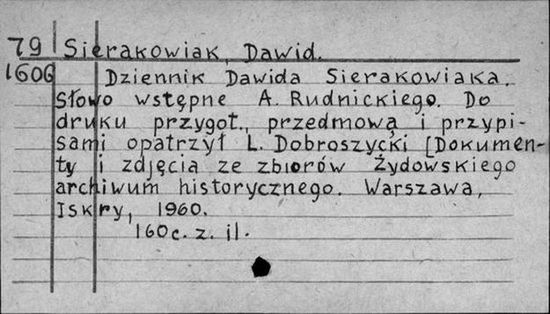 79 Sierakowiak, Dawid.
1606 Dziennik Dawida Sierakowiaka.
Słowo wstępne A. Rudnickiego. Do
druku przygot., przedmową i przypi-
sami opatrzył L. Dobroszycki [Dokumen-
ty i zdjęcia ze zbiorów Żydowskiego
archiwum historycznego. Warszawa,
Iskry, 1960.
160 c. z. il.